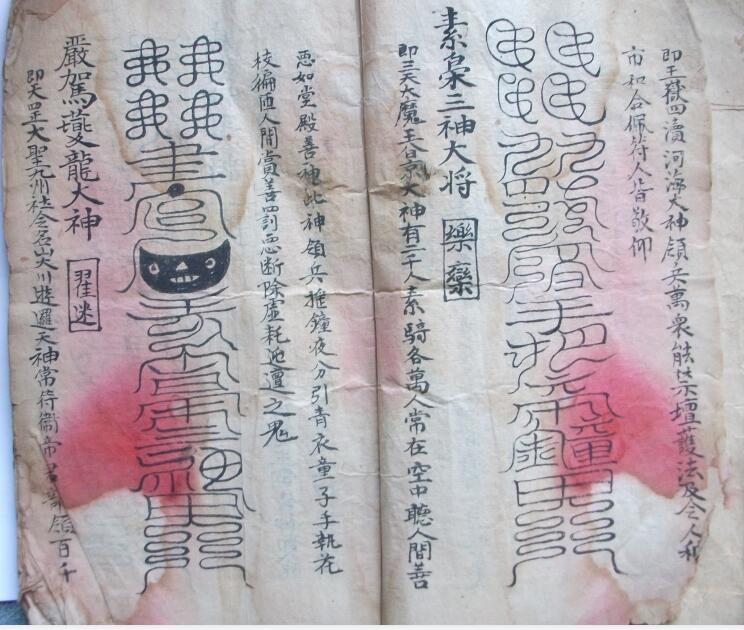 即王嶽四瀆河海大神領兵萬衆能示壇護法及令人和
市和合佩符人皆敬仰
素梟三神大将 樂欒
即三天大魔王大神有二千人素騎各萬人常在空中聽人間善
惡如堂殿善神此神領兵搥鐘夜分引青衣童子手執花
枝徧匝人間賞善罰惡斷除虛耗近壇之鬼
嚴駕夔龍大神 翟迷
即天罡大聖九州社令名山大川遊邏天神常侍衛帝君部領百千